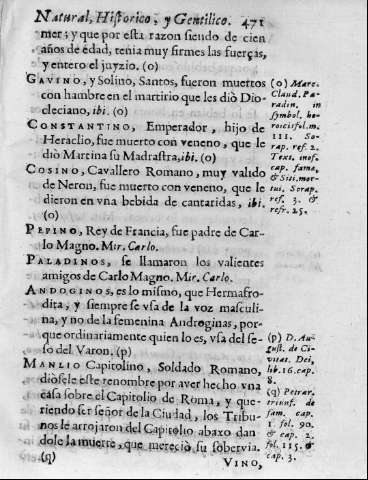 Natural, Historico, y Gentilico. 471
mer; y que por esta razon siendo de cien
años de edad, tenia muy firmes las fuerças,
y entero el juyzio. (o)
GAVINO, y Solino, Santos, fueron muertos
con hambre en el martirio que les diò Dio-
cleciano, ibi. (o)
CONSTANTINO, Emperador, hijo de
Heraclio, fue muerto con veneno, que le
diò Martina su Madrastra, ibi. (o)
COSINO, Cavallero Romano, muy valido
de Neron, fue muerto con veneno, que le
dieron en vna bebida de cantaridas, ibi.
(o)
PEPINO, Rey de Francia, fue padre de Car-
lo Magno. Mir. Carlo.
PALADINOS, se llamaron los valientes
amigos de Carlo Magno. Mir. Carlo.
ANDOGINOS, es lo mismo, que Hermafro-
dita; y siempre se vsa de la voz masculi-
na, y no de la femenina Androginas, por-
que ordinariamente quien lo es, vsa del se-
so del Varon. (p)
MANLIO Capitolino, Soldado Romano,
diòsele este renombre por aver hecho vna
casa sobre el Capitolio de Roma, y que-
riendo ser señor de la Ciudad, los Tribu-
nos le arrojaron del Capitolio abaxo dan
dole la muerte, que mereciò su sobervia.
(q)
VINO,
(o) Marc.
Claud. Pa-
radin. in
symbol. he-
roicis fol. m.
111. So-
rap. ref. 2.
Text. in of.
cap. fame,
& Siti. mor-
tui. Sorap.
ref. 3. &
refr. 25.
(p) D. Au-
gust. de Ci-
vitat. Dei,
lib. 16. cap.
8.
(q) Petrar.
triunf. de
fam. cap.
1 fol. 90.
& cap. 2.
fol. 115. &
cap. 3.